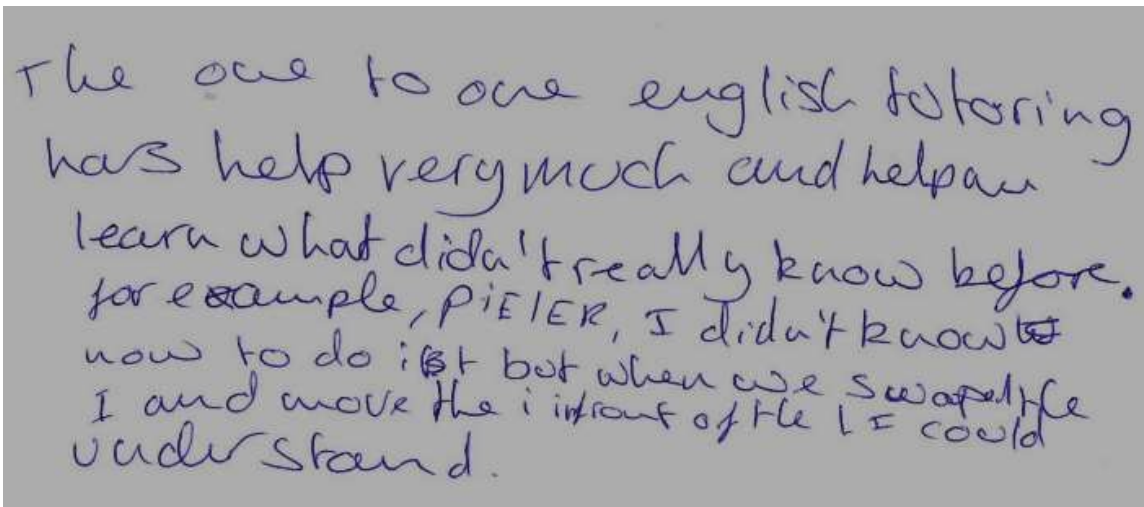 The one to one english totoring
has help very much and help an
learn what didn't really know before.
for example, PiE/ER, I didn't know
how to do it but when we swaped the
I and move the i infront of the I could
understand.